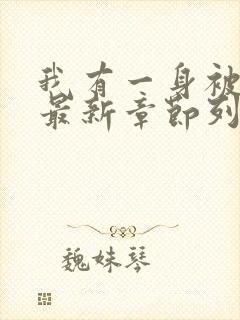 我有一身被
最新章节列
魏妹琴